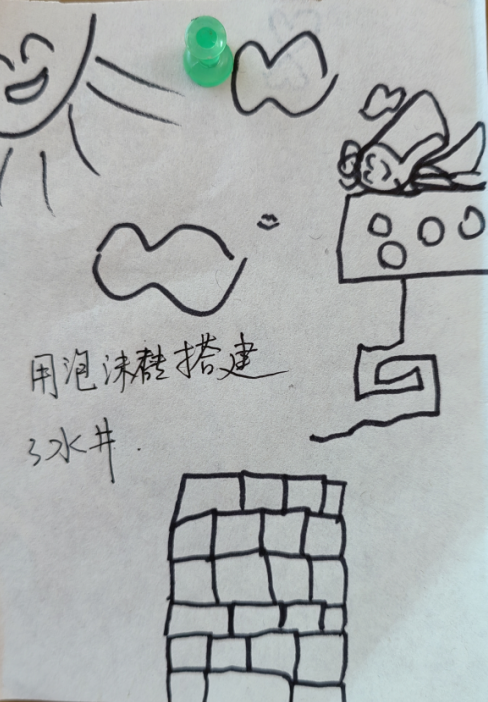 用泡沫砖搭建
了水井.